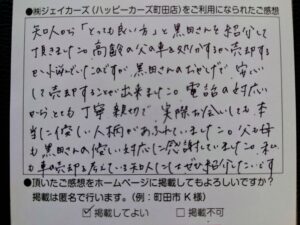 ●㈱ジェイカーズ（ハッピーカーズ町田店）をご利用になられたご感想
知人から「とっても良い方」と黒田さんを紹介して
頂きました。高齢の父の車を処分するか売却する
か悩んでいたのですが黒田さんのおかげで、安心
して売却することが出来ました。電話の対応
からとても丁寧、親切で、実際お会いしても本
当に優しい人柄があふれていました。父も母
も黒田さんの優しい対応に感謝していました。私
も車の売却を考えている知人にはぜひ紹介したいです
●頂いたご感想をホームページに掲載してもよろしいですか？
掲載は匿名で行います。（例：町田市 K 様）
☑ 掲載してよい　□ 掲載不可